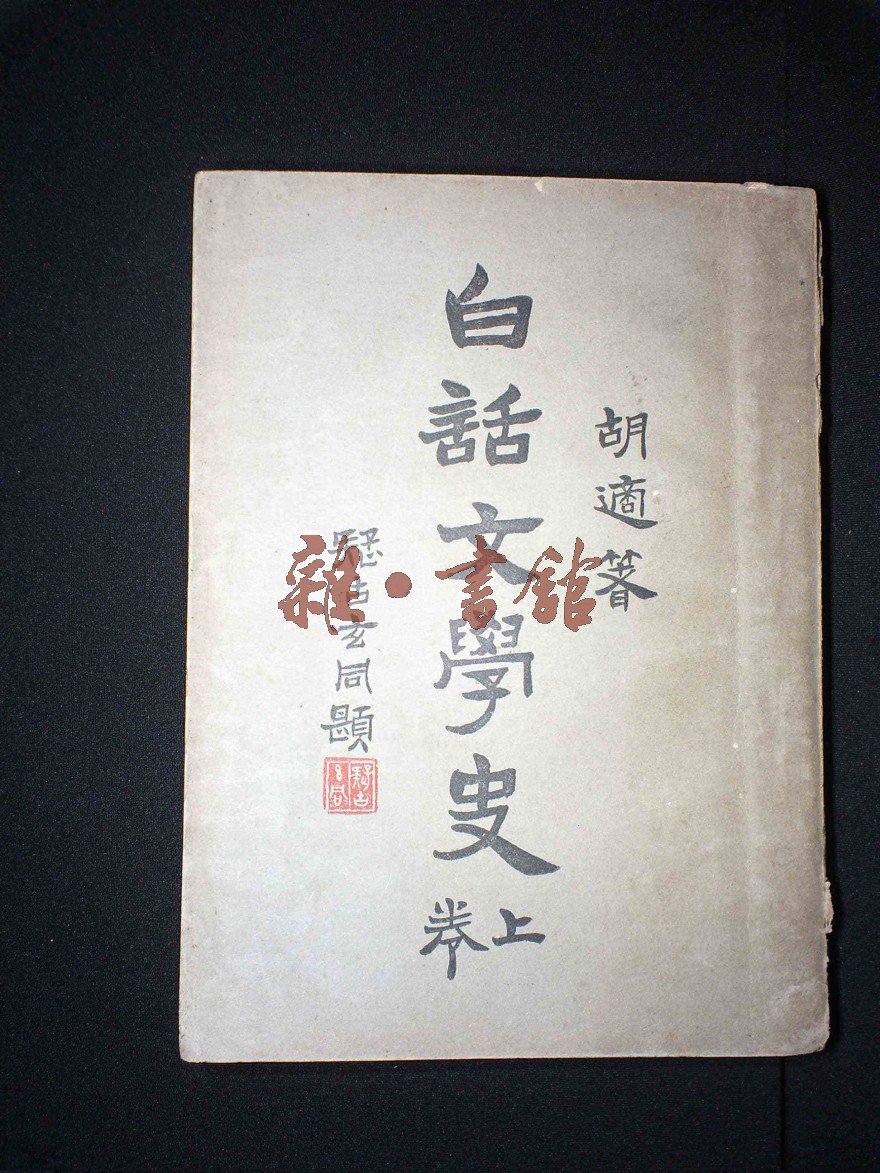 胡適著
白話文學史
上卷
疑古玄同題
疑古玄同
雜·書館